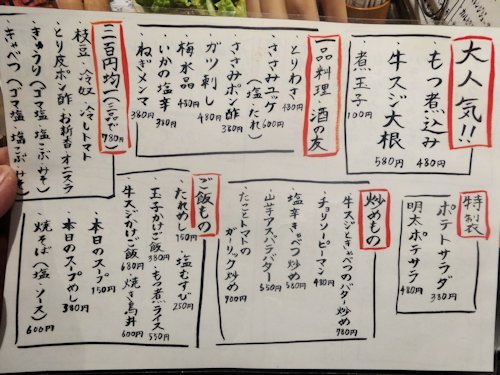 大人気!!
もつ煮込み 480円
牛スジ大根 580円
煮玉子 100円
一品料理 酒の友
・とりわさ 430円
・ささみユッケ(塩・たれ) 600円
・ささみポン酢 380円
・ガツ刺し 480円
・梅水晶 430円
・いかの塩辛 380円
・ねぎメンマ 380円
二百円均一(三品で780円)
・枝豆 ・冷奴 ・冷しトマト
・とり皮ポン酢 ・お新香 ・オニスラ
・きゅうり(ゴマ塩・塩こぶ・みそ)
・きゃべつ(ゴマ塩・塩こぶ・みそ)
特製
ポテトサラダ 380円
明太ポテサラ 480円
炒めもの
・牛スジときゃべつのバター炒め 780円
・チョリソーピーマン 480円
・塩辛きゃべつ炒め 580円
・山芋アスパラバター 650円
・たことトマトのガーリック炒め 700円
ご飯もの
・たれめし 150円 ・塩むすび 250円
・玉子かけご飯 380円 ・もつ煮ライス 550円
・牛スジかけご飯 680円 ・焼き鳥丼 600円
・本日のスープ 150円
・本日のスープめし 380円
・焼そば(塩・ソース) 600円